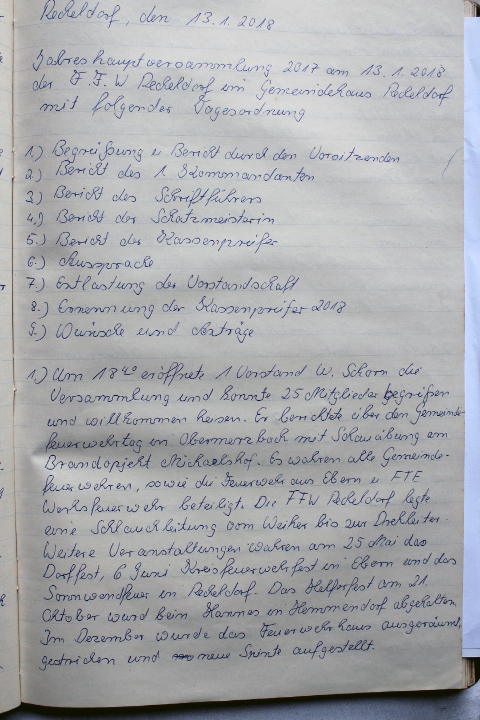 Recheldorf, den 13.1.2018
Jahreshauptversammlung 2017 am 13.1.2018
der F.F.W Recheldorf im Gemeindehaus Recheldorf
mit folgender Tagesordnung
1.) Begreißung u Bericht durch den Vorsitzenden
2.) Bericht des 1. Kommandanten
3.) Bericht des Schriftführers
4.) Bericht der Schatzmeisterin
5.) Bericht der Kassenpreifer
6.) Aussprache
7.) Entlastung der Vorstandschaft
8.) Ernennung der Kassenpreifer 2018
9.) Wünsche und Anträge
1.) Um 18⁴⁰ eröffnete 1 Vorstand W. Schorn die
Versammlung und konnte 25 Mitglieder begreißen
und willkommen heisen. Er berichtete über den Gemeinde-
feuerwehrtag in Obermerzbach mit Schauübung am
Brandopjekt Michaelshof. Es wahren alle Gemeinde-
feuerwehren, sowie die Feuerwehr aus Ebern u FTE
Werksfeuerwehr beteiligt. Die FFW Recheldorf legte
eine Schlauchleitung vom Weiher bis zur Drehleiter.
Weitere Veranstaltungen wahren am 25 Mai das
Dorffest, 6 Juni Kreisfeuerwehrfest in Ebern und das
Sonnwendfeuer in Recheldorf. Das Helferfest am 21.
Oktober wurd beim Hannes in Hemmendorf abgehalten.
Im Dezember wurde das Feuerwehrhaus ausgeräumt,
gestrichen und neue Spinte aufgestellt.